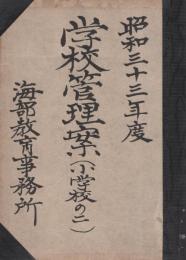 昭和三十三年度
学校管理案（小学校の二）
海部教育事務所